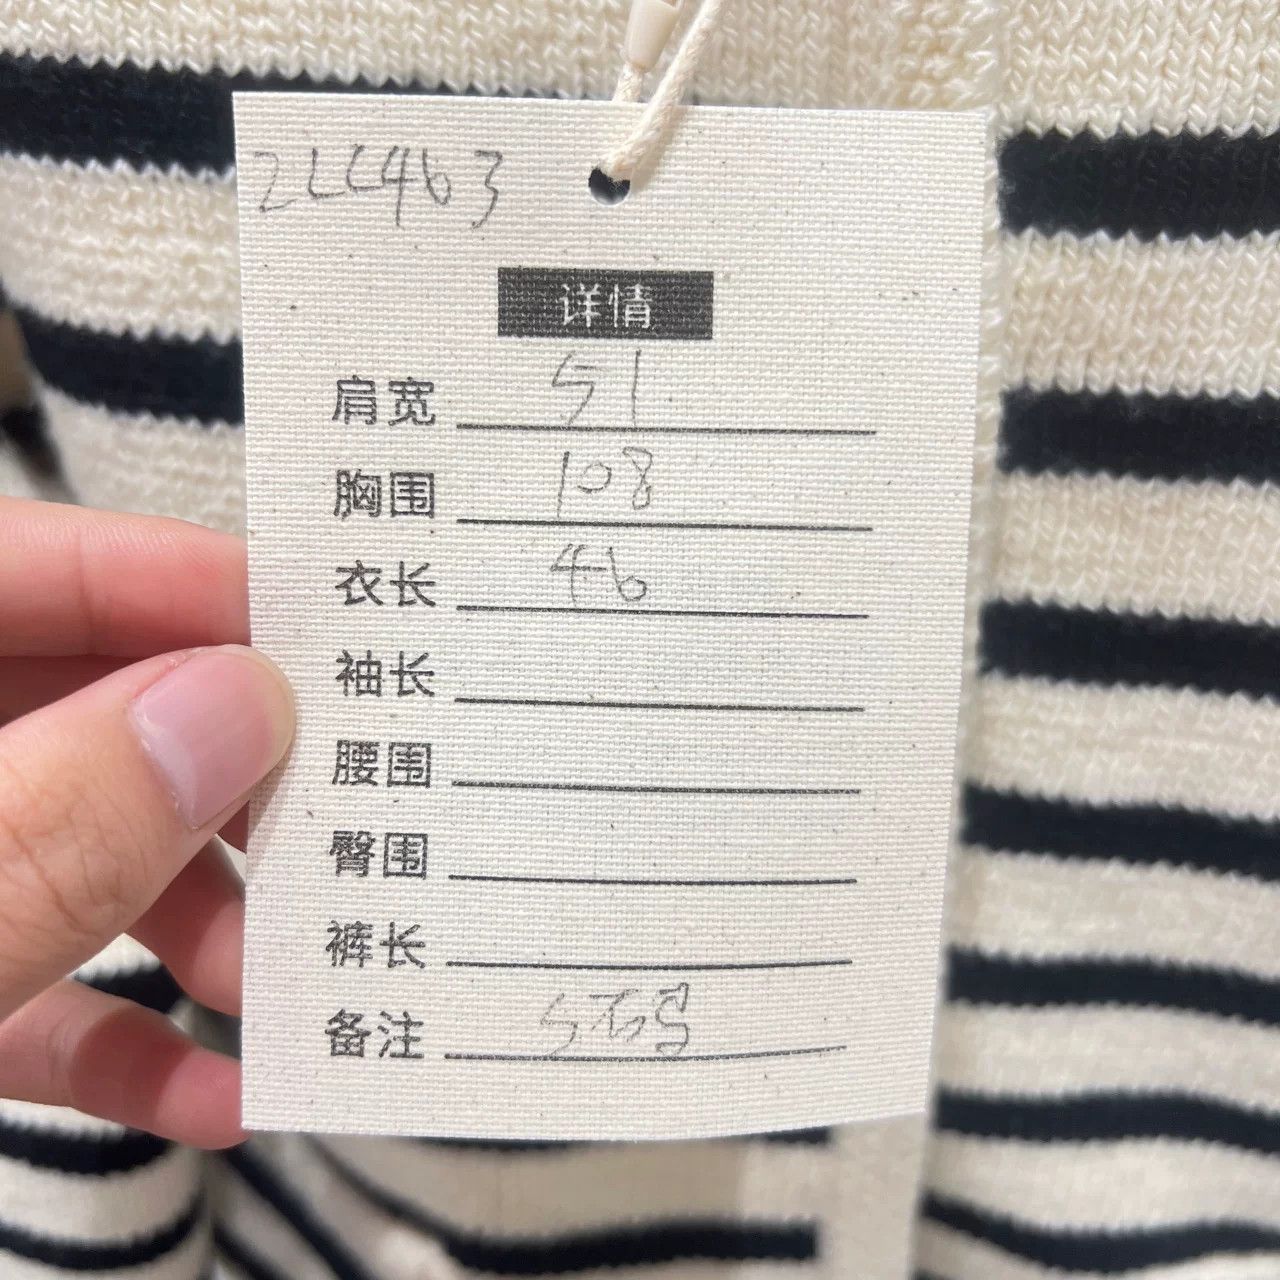 2LC463
详情
肩宽 51
胸围 108
衣长 46
袖长
腰围
臀围
裤长
备注 S码